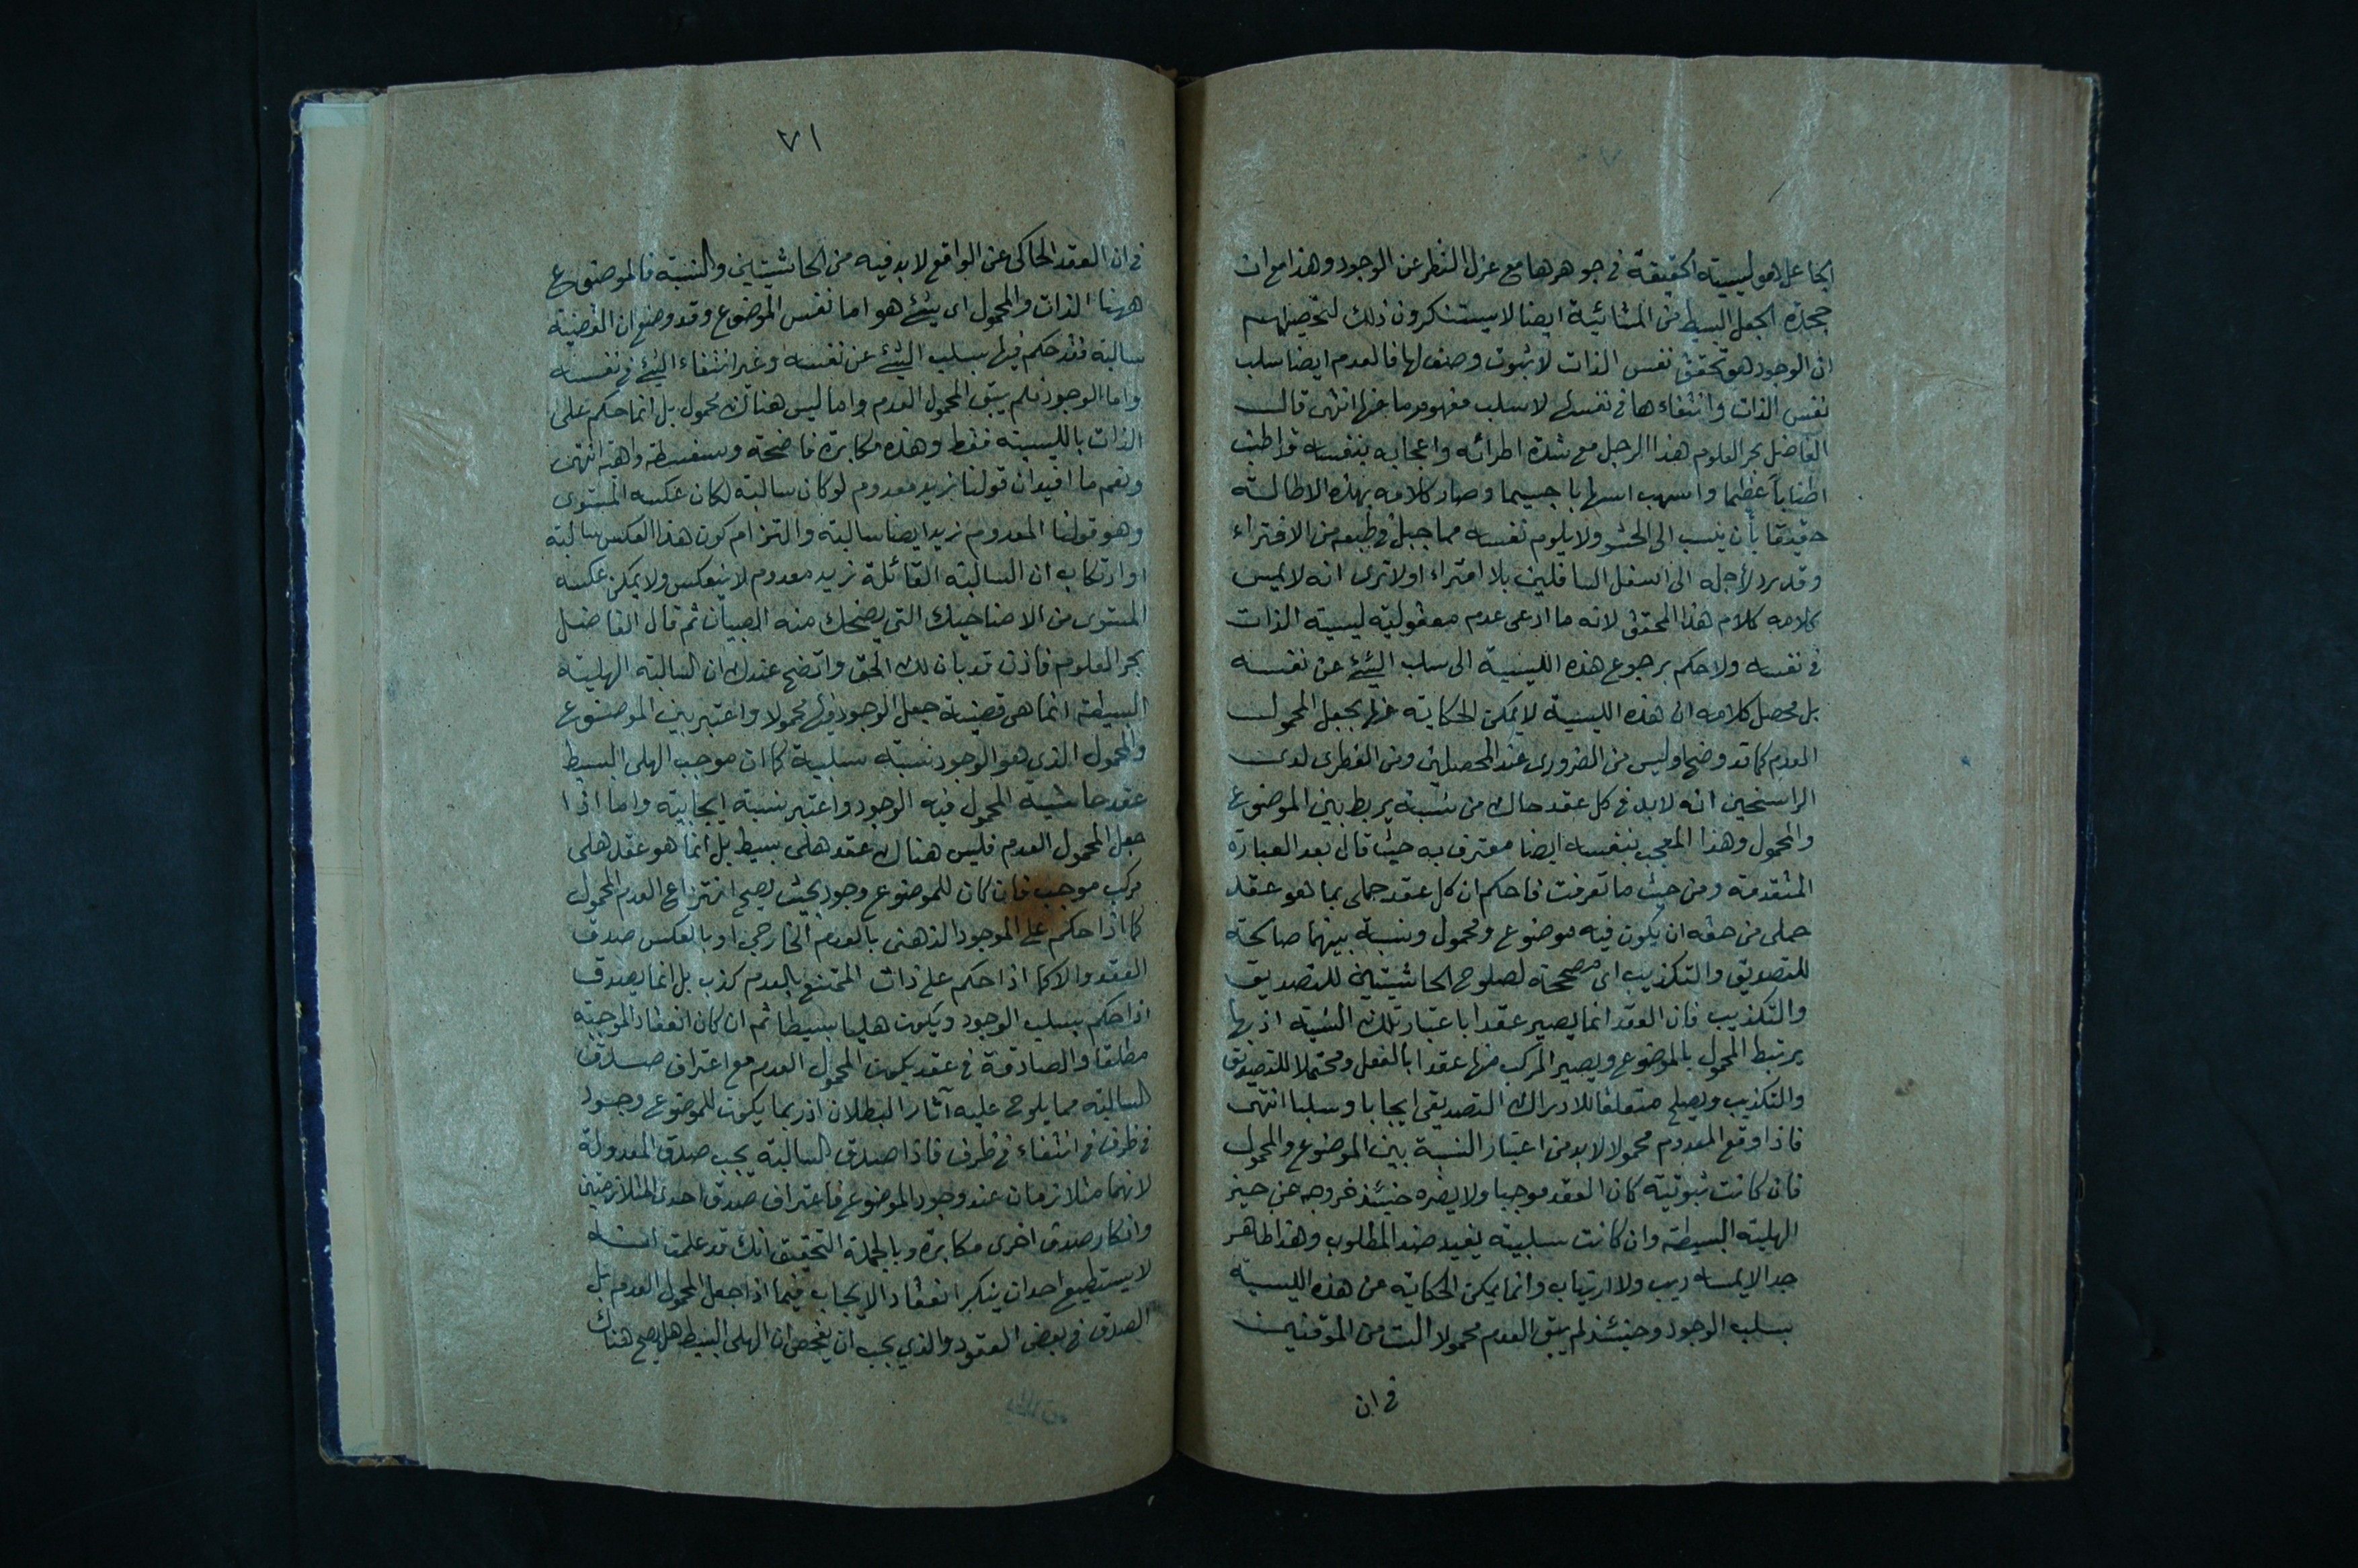 الجاعل هو ليسية الحقيقة في جوهرها مع عزل النظر عن الوجود وهذا مع ان
جحدة الجعل البسيط من المشائية ايضا لا يستنكرون ذلك لتحصيلهم
ان الوجود هو تحقق نفس الذات لا ثبوت وصف لها فالعدم ايضا سلب
نفس الذات وانتفاءها في نفسها لا سلب مفهوم ما عنها انتهى قال
الفاضل بحر العلوم هذا الرجل مع شدة اطرائه واعجابه بنفسه قد اطنب
اطناباً عظيما واسهب اسهابا جسيما وصار كلامه بهذه الاطالة
حقيقا بأن ينسب الى الحشو ولا يلوم نفسه مما جبل في طبعه من الافتراء
وقد يرد لأجله الى اسفل السافلين بلا امتراء اولا ترى انه لا يمس
كلامه كلام هذا المحقق لانه ما ادعى عدم معقولية ليسية الذات
في نفسه ولا حكم برجوع هذه الليسية الى سلب الشئ عن نفسه
بل محصل كلامه ان هذه الليسية لا يمكن الحكاية عنها بجعل المحمول
العدم كما قد وضح اوليس من الضروري عند المحصلين ومن الفطرى لدى
الراسخين انه لا بد في كل عقد حاك من نسبة يربط بين الموضوع
والمحمول وهذا المعجب بنفسه ايضا معترف به حيث قال بعد العبارة
المتقدمة ومن حيث ما تعرفت فاحكم ان كل عقد حملى بما هو عقد
حملى من حقه ان يكون فيه موضوع ومحمول ونسبة بينهما صالحة
للتصديق والتكذيب اى مصححة لصلوح الحاشيتين للتصديق
والتكذيب فان العقد انما يصير عقدا باعتبار تلك النسبة اذ بها
يرتبط المحمول بالموضوع ويصير المركب منها عقدا بالفعل ومحتملا للتصديق
والتكذيب ويصلح متعلقا للادراك التصديقى ايجابا وسلبا انتهى
فاذا وقع المعدوم محمولا لا بد من اعتبار النسبة بين الموضوع والمحمول
فان كانت ثبوتية كان العقد موجبا ولا يضره حينئذ خروجه عن حيز
الهلية البسيطة وان كانت سلبية يفيد ضد المطلوب وهذا ظاهر
جدا لا يمسه ريب ولا ارتياب وانما يمكن الحكاية عن هذه الليسية
بسلب الوجود وحينئذ لم يبق العدم محمولا الست من الموقنين
في ان
٧١
في ان العقد الحاكى عن الواقع لا بد فيه من الحاشيتين والنسبة فالموضوع
ههنا الذات والمحمول اى شئ هو اما نفس الموضوع وقد وضع ان القضية
سالبة فقد حكم فيها بسلب الشئ عن نفسه وغير انتفاء الشئ في نفسه
واما الوجود فلم يبق المحمول العدم واما ليس هناك محمول بل انما حكم على
الذات بالليسية فقط وهذه مكابرة فاضحة وسفسطة واهية انتهى
ونعم ما افيد ان قولنا زيد معدوم لو كان سالبة لكان عكسه المستوى
وهو قولنا المعدوم زيد ايضا سالبة والتزام كون هذا العكس سالبة
او ارتكاب ان السالبة القائلة زيد معدوم لا ينعكس ولا يمكن عكسه
المستوى من الاضاحيك التي يضحك منه الصبيان ثم قال الفاضل
بحر العلوم فاذن قد بان لك الحق واتضح عندك ان السالبة الهلية
البسيطة انما هى قضية جعل الوجود فيها محمولا واعتبر بين الموضوع
والمحمول الذي هو الوجود نسبة سلبية كما ان موجب الهلى البسيط
عقد حاشية المحمول فيه الوجود واعتبر نسبة ايجابية واما اذا
جعل المحمول العدم فليس هناك عقد هلى بسيط بل انما هو عقد هلى
مركب موجب فان كان للموضوع وجود بحيث يصح انتزاع العدم المحمول
كما اذا حكم على الموجود الذهنى بالعدم الخارجي او بالعكس صدق
العقد والا كما اذا حكم على ذات الممتنع بالعدم كذب بل انما يصدق
اذا حكم بسلب الوجود ويكون هليا بسيطا ثم ان كان انعقاد الموجبة
مطلقا والصادقة في عقد يكون المحمول العدم مع اعتراف صدق
السالبة مما يلوح عليه آثار البطلان اذ ربما يكون للموضوع وجود
في ظرف في انتفاء في ظرف فاذا صدق السالبة يجب صدق المعدولة
لانهما متلازمان عند وجود الموضوع فاعتراف صدق احدى المتلازمين
وانكار صدق اخرى مكابرة وبالجملة التحقيق انك قد علمت انه
لا يستطيع احد ان ينكر انعقاد الايجاب فيما اذا جعل المحمول العدم بل
الصدق في بعض العقود والذي يجب ان يفحص ان الهلى البسيط هل يصح هناك